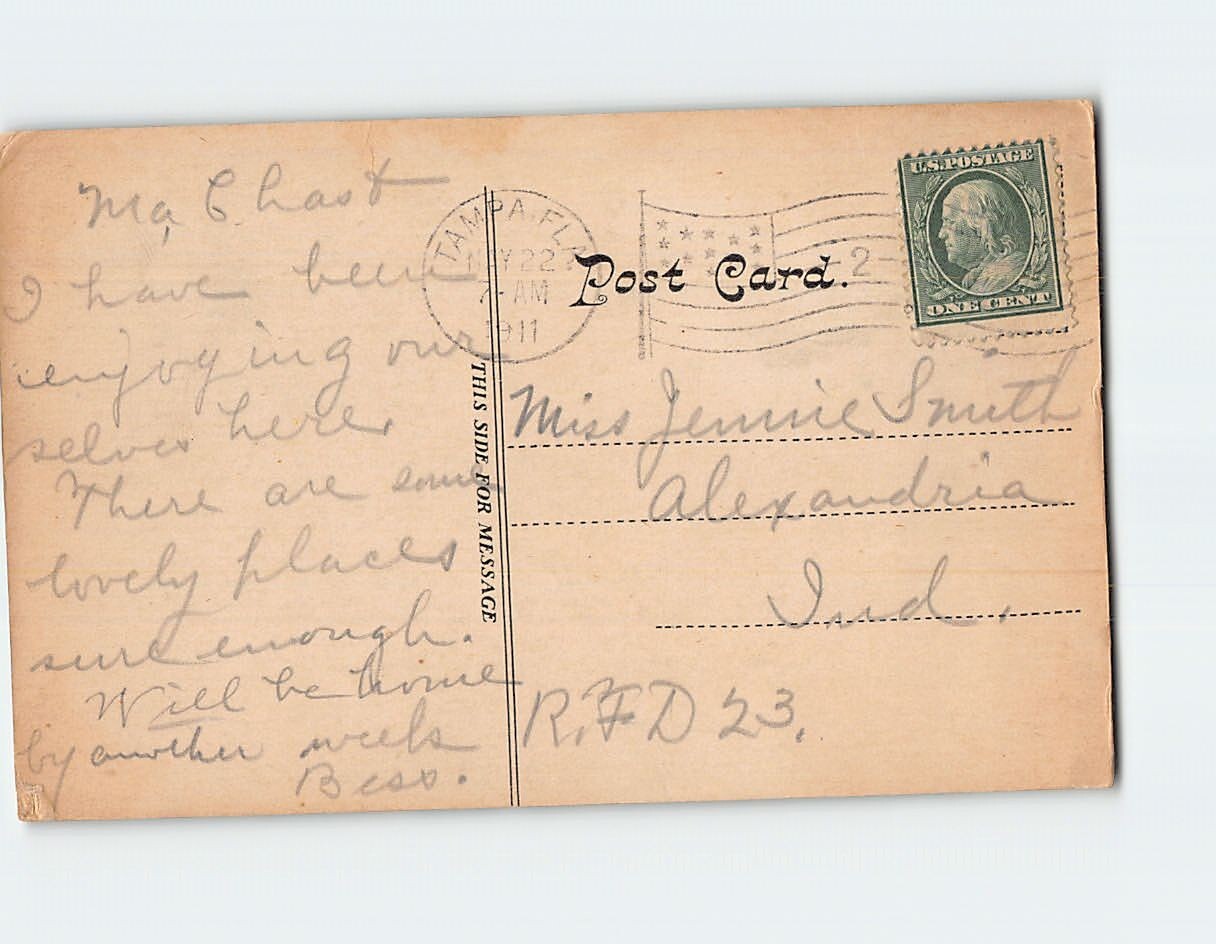 I have been
enjoying our
selves here.
There are some
lovely places
sure enough.
Will be home
by another week
Bess.
THIS SIDE FOR MESSAGE
TAMPA, FLA.
22
7-AM
1911
Post Card.
2
U.S. POSTAGE
ONE CENT
Miss Jennie Smith
Alexandria
Ind.
R.F.D 23.